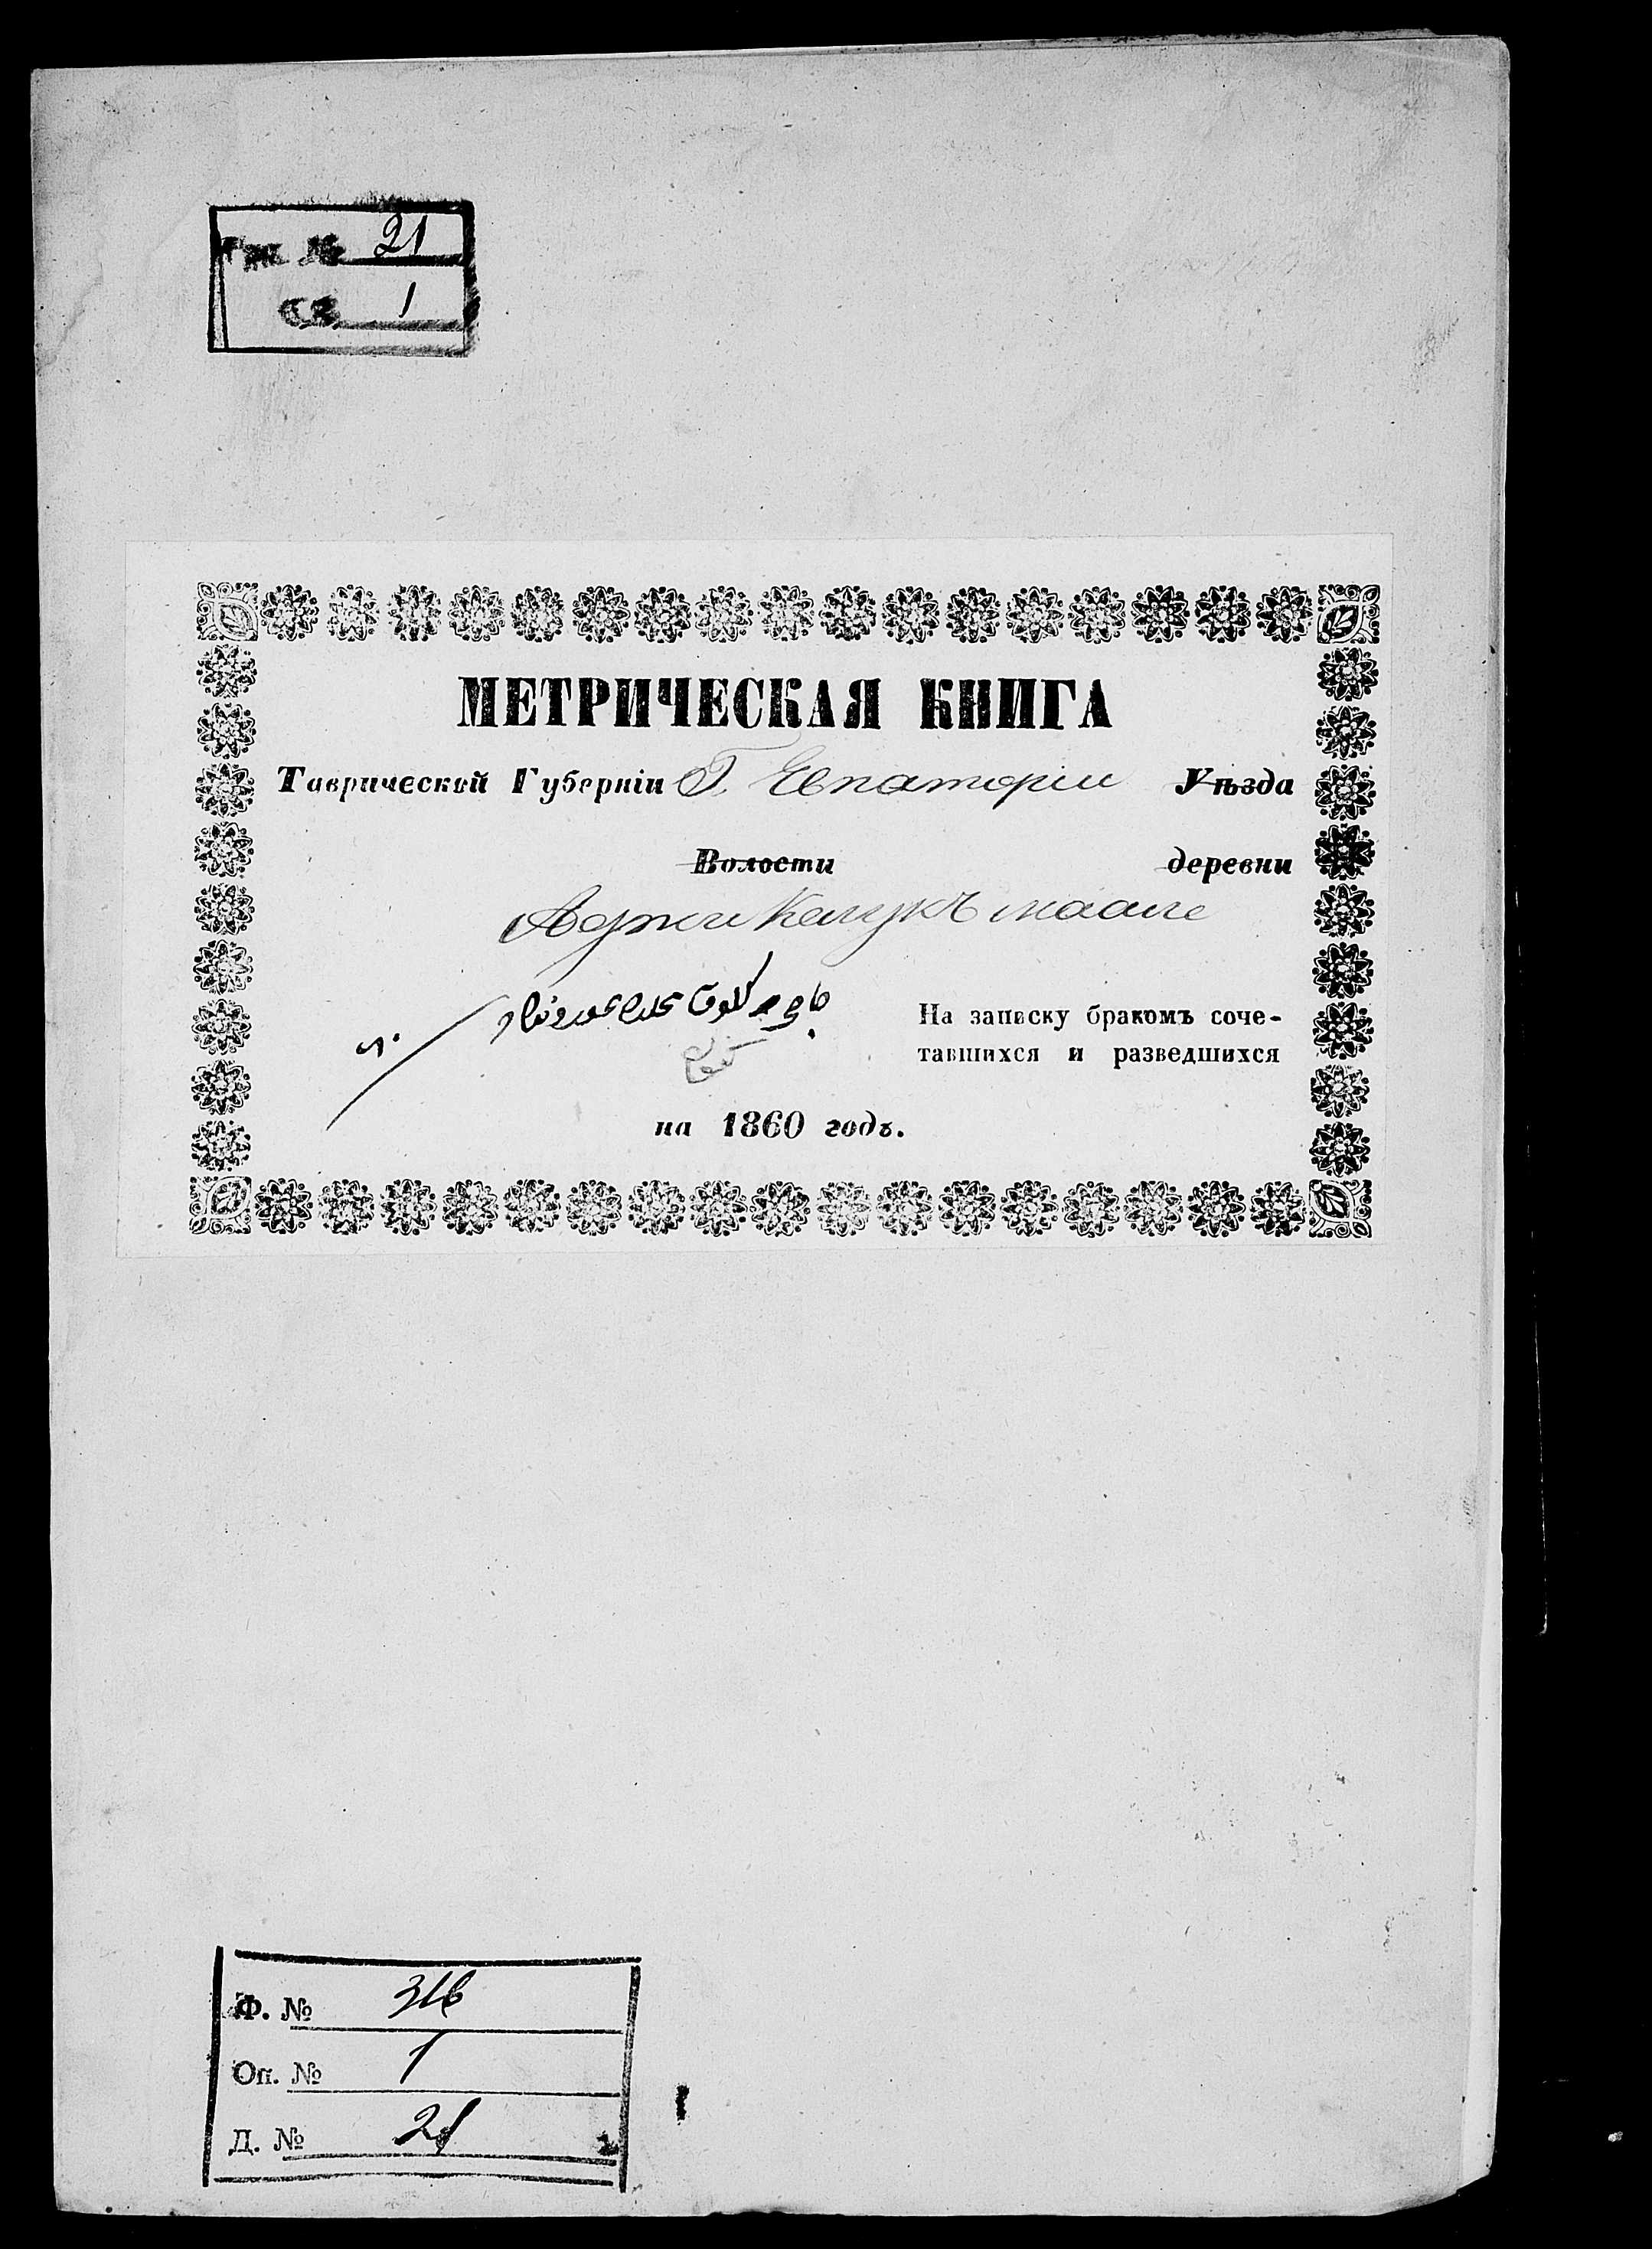 № 21
1
МЕТРИЧЕСКАЯ КНИГА
Таврической Губерніи Г. Евпаторіи Уѣзда
Волости деревни
Аджи Калукъ маале
На записку бракомъ соче-
тавшихся и разведшихся
на 1860 годъ.
Ф. № 316
Оп. № 1
Д. № 21